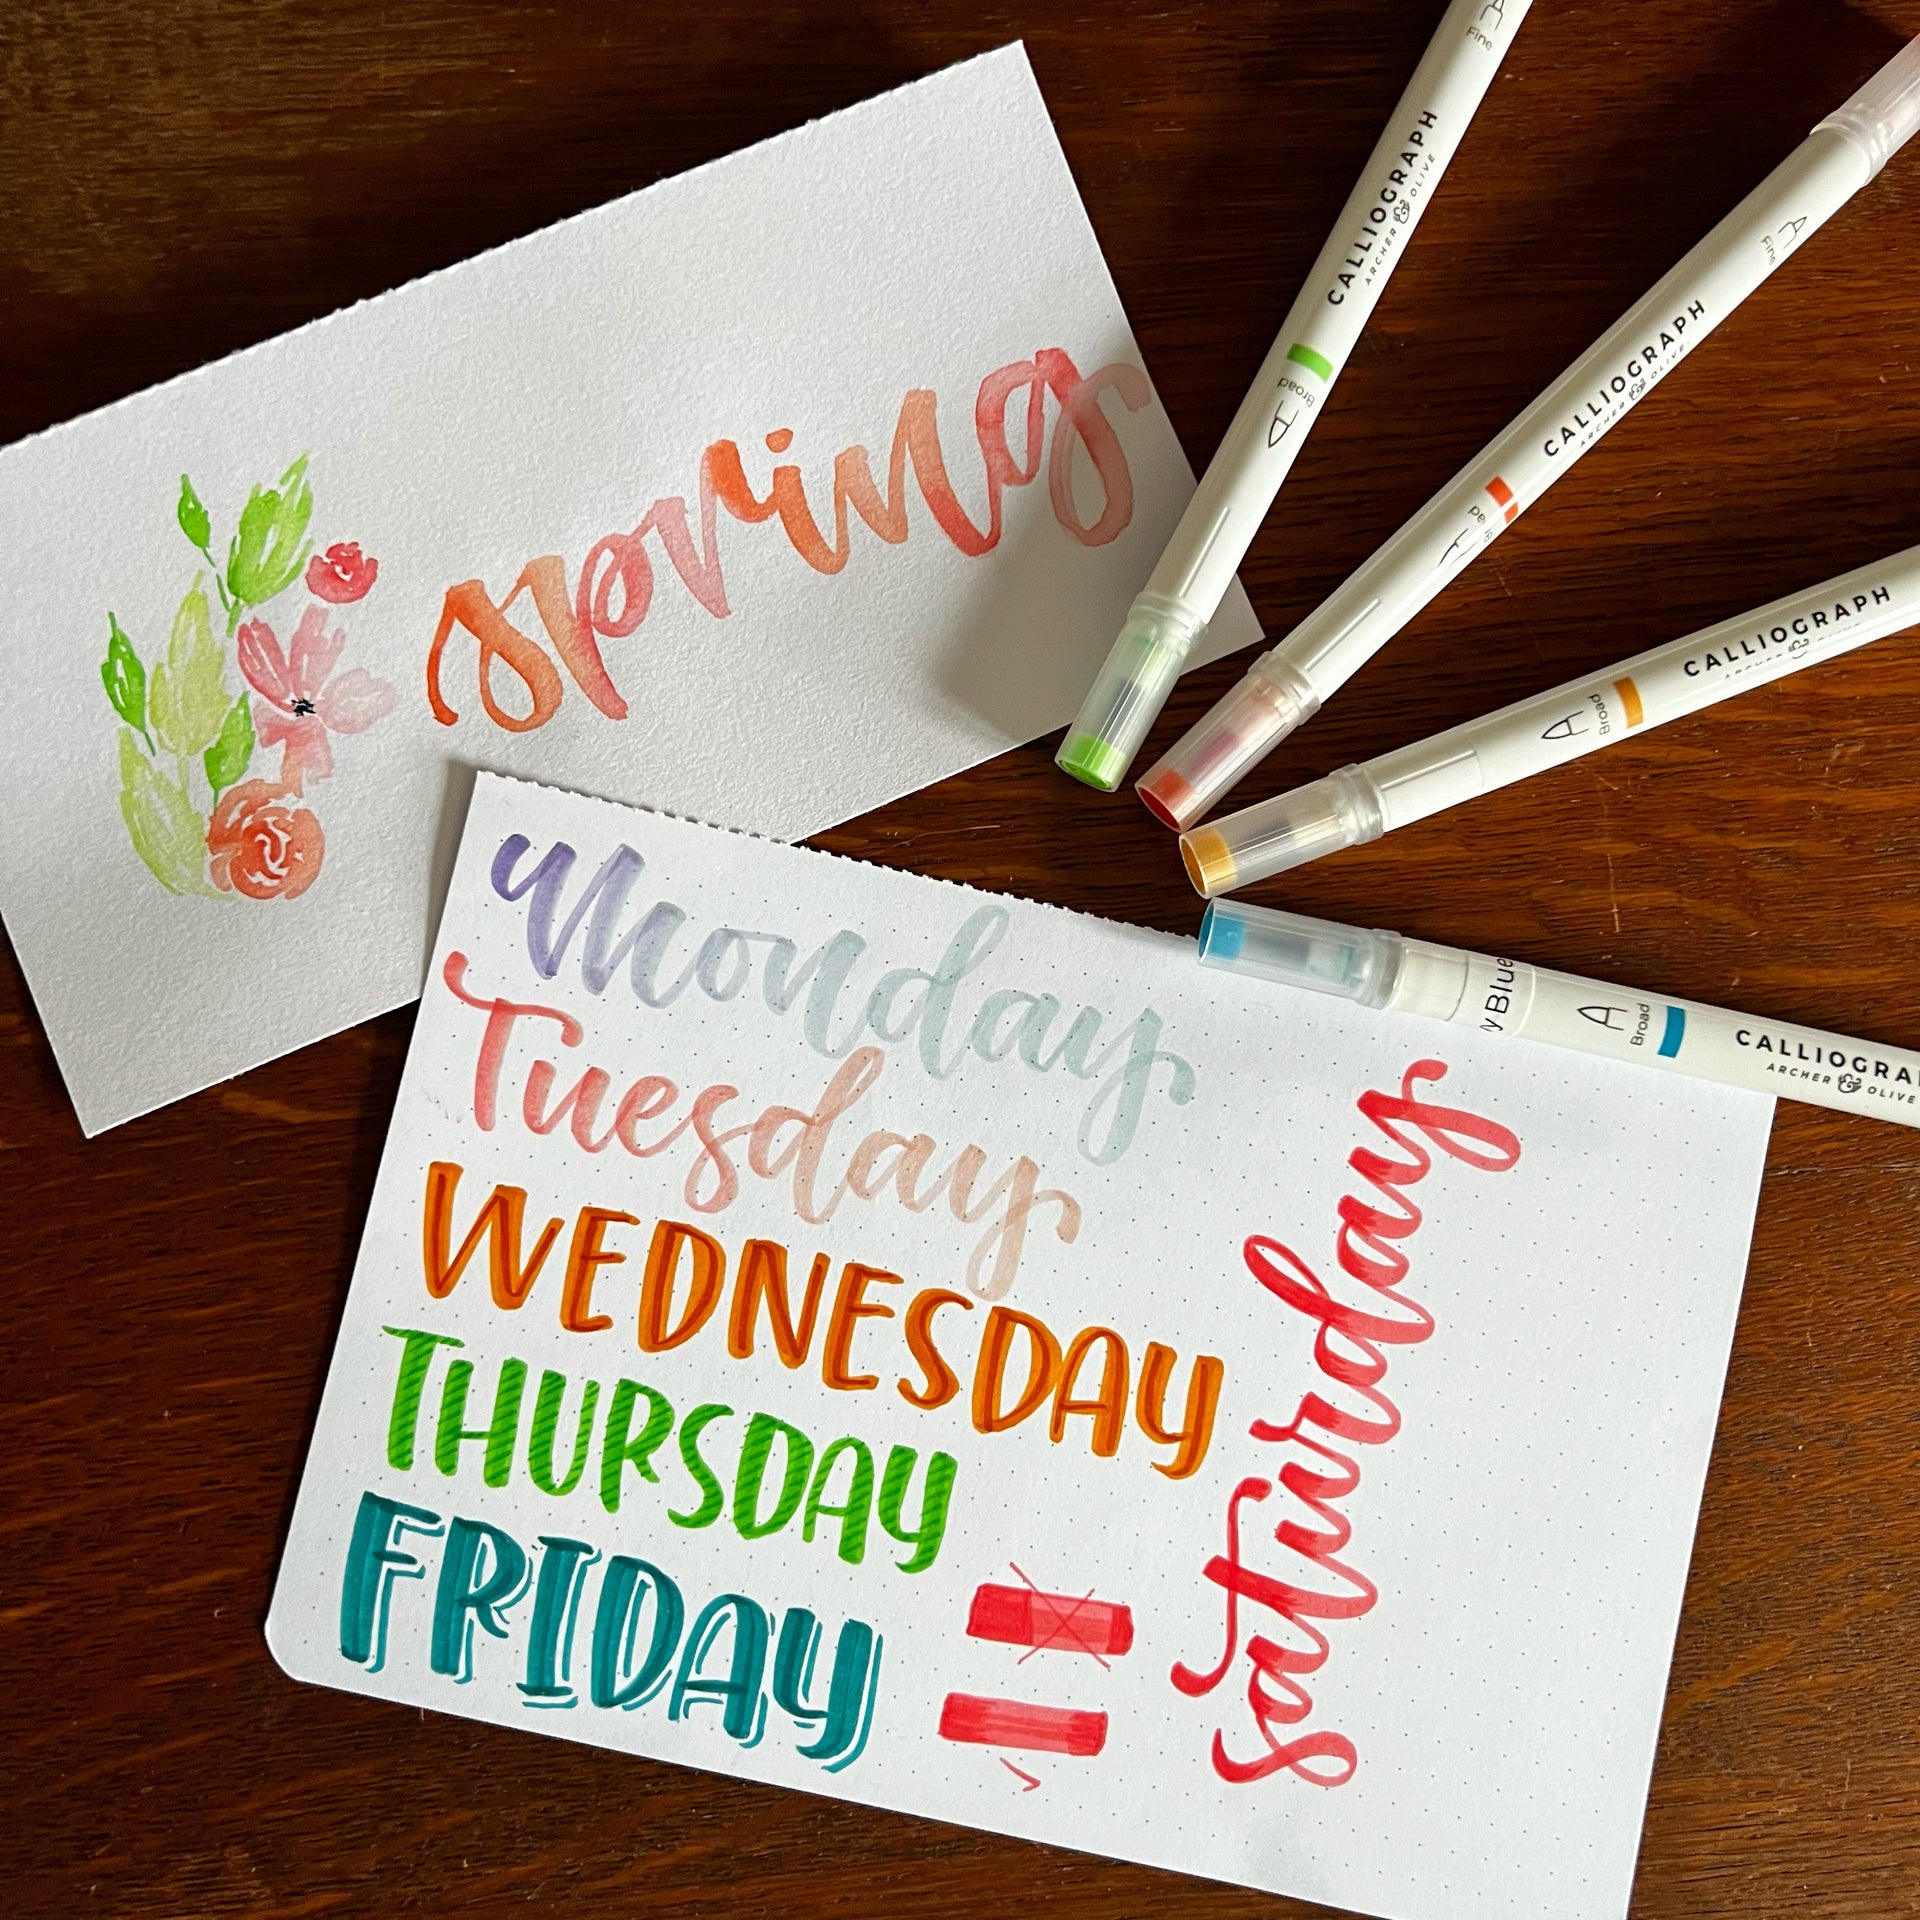 spring
Monday
Tuesday
WEDNESDAY
THURSDAY
FRIDAY
saturday
Fine
CALLIOGRAPH
ARCHER & OLIVE
Broad
Fine
CALLIOGRAPH
ARCHER & OLIVE
Broad
CALLIOGRAPH
ARCHER & OLIVE
Broad
y Blue
Broad
CALLIOGRA
ARCHER & OLIVE